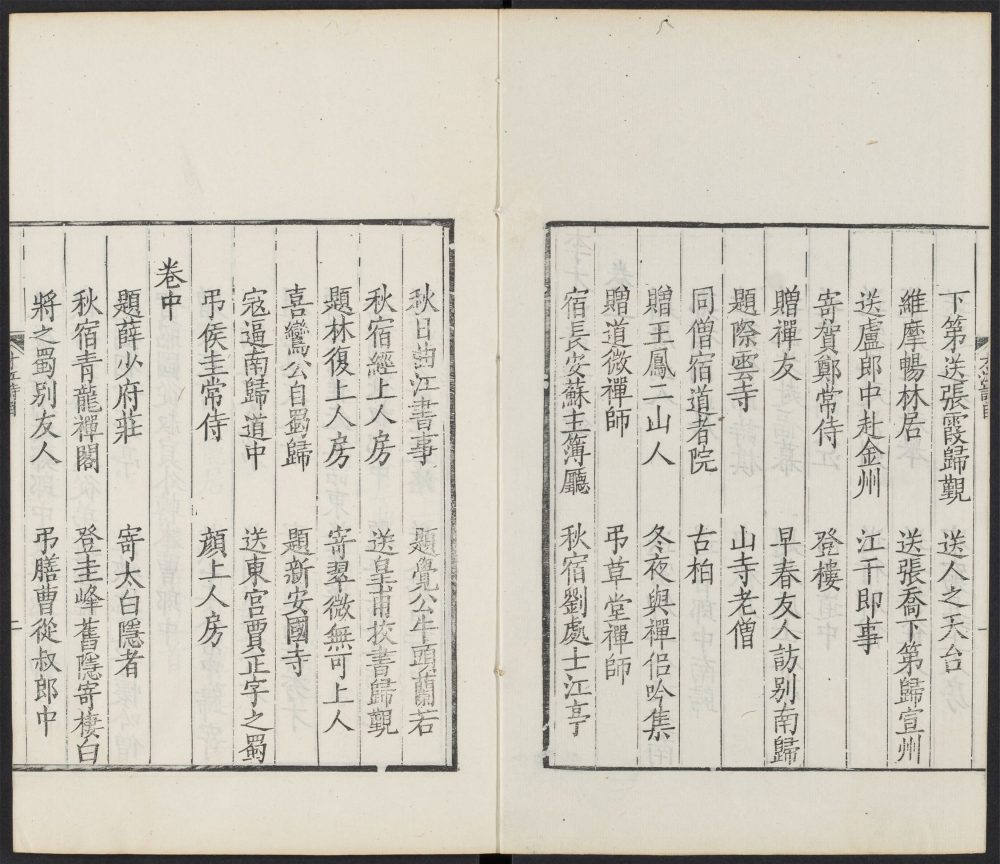 下第送張霞歸覲 送人之天台
維摩暢林居 送張喬下第歸宣州
送盧郎中赴金州 江干即事
寄賀鄭常侍 登樓
贈禪友 早春友人訪别南歸
題際雲寺 山寺老僧
同僧宿道者院 古柏
贈王鳳二山人 冬夜與禪侶吟集
贈道微禪師 弔草堂禪師
宿長安蘇主簿廳 秋宿劉處士江亭
秋日曲江書事 題覺公牛頭蘭若
秋宿經上人房 送皇甫挍書歸覲
題林復上人房 寄翠微無可上人
喜鸞公自蜀歸 題新安國寺
寇逼南歸道中 送東宮賈正字之蜀
弔侯圭常侍 顔上人房
卷中
題薛少府莊 寄太白隱者
秋宿青龍禪閣 登圭峰舊隱寄棲白
將之蜀别友人 弔膳曹從叔郎中